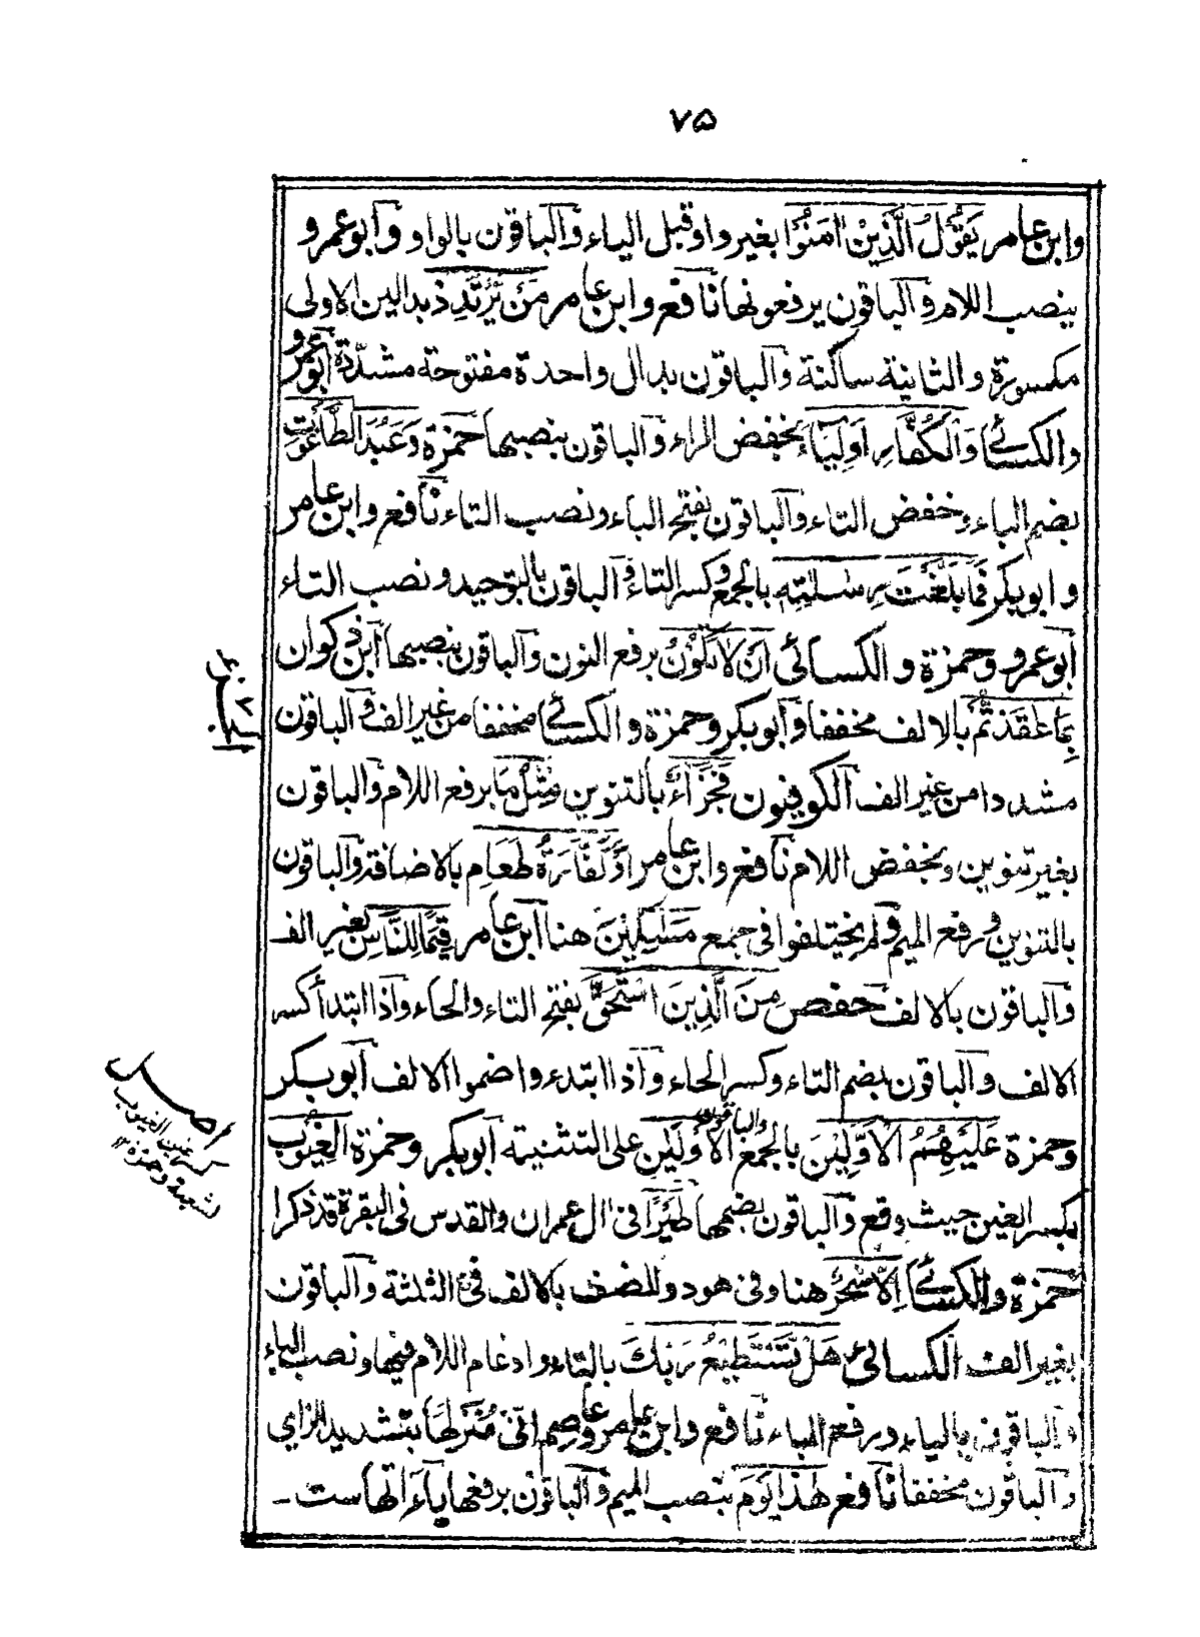 ٧٥
وابن عامر يَقُوْلُ الَّذِيْنَ اٰمَنُوْا بغير واو قبل الياء وٓالباقون بالواو وٓابو عمرو
ينصب اللام وٓالباقون يرفعونها نٓافع وابن عامر مَنْ يَّرْتَدِدْ بدالين الاولى
مكسورة والثانية ساكنة وٓالباقون بدال واحدة مفتوحة مشدّدة ابٓو عمرو
والكسائى وَالْكُفَّارِ اَوْلِيَآءَ بخفض الراء وٓالباقون بنصبها حٓمزة وَعَبُدَ الطَّاغُوْتِ
بضم الباء وخفض التاء وٓالباقون بفتح الباء ونصب التاء نٓافع وابن عامر
وابوبكر فَمَا بَلَّغْتَ رِسٰلٰتِهٖ بالجمع وكسر التاء وٓالباقون بالتوحيد ونصب التاء
ابٓو عمرو وحمزة والكسائى اَنْ لَا تَكُوْنُ برفع النون وٓالباقون بنصبها ابٓن ذكوان
بِمَا عٰقَدْتُّمْ بالالف مخففا وٓابوبكر وحمزة والكسائى مخففا من غير الف وٓالباقون
مشددا من غير الف الٓكوفيون فَجَزَآءٌ بالتنوين مِّثْلُ مَا برفع اللام وٓالباقون
بغير تنوين وبخفض اللام نٓافع وابن عامر اَوْ كَفَّارَةُ طَعَامِ بالاضافة وٓالباقون
بالتنوين ورفع الميم ولم يختلفوا فى جمع مَسٰكِيْنَ هنا ابٓن عامر قِيَمًا لِّلنَّاسِ بغير الف
وٓالباقون بالالف حٓفص مِنَ الَّذِيْنَ اسْتَحَقَّ بفتح التاء والحاء وٓاذا ابتدأ كسر
الالف وٓالباقون بضم التاء وكسر الحاء وٓاذا ابتدءوا ضموا الالف ابٓوبكر
وحمزة عَلَيْهُمُ الْاَوَّلِيْنَ بالجمع وٓالباقون الْاَوْلَيٰنِ على التثنية ابٓوبكر وحمزة الْغِيُوْبِ
بكسر الغين حيث وقع وٓالباقون بضمها طَيْرًا فى ال عمران والقدس فى البقرة قد ذكرا
حٓمزة والكسائى اِلَّا سٰحِرٌ هنا وفى هود والصف بالالف فى الثلثة وٓالباقون
بغير الف الٓكسائى هَلْ تَّسْتَطِيْعُ رَبَّكَ بالتاء وادغام اللام فيها ونصب الباء
وٓالباقون بالياء ورفع الباء نٓافع وابن عامر وعاصم اِنِّىْ مُنَزِّلُهَا بتشديد الزاى
وٓالباقون مخففا نٓافع هٰذَا يَوْمَ بنصب الميم وٓالباقون برفعها ياٰءاتها ست -
كسر غين الغيوب
لشعبة وحمزة ١٢